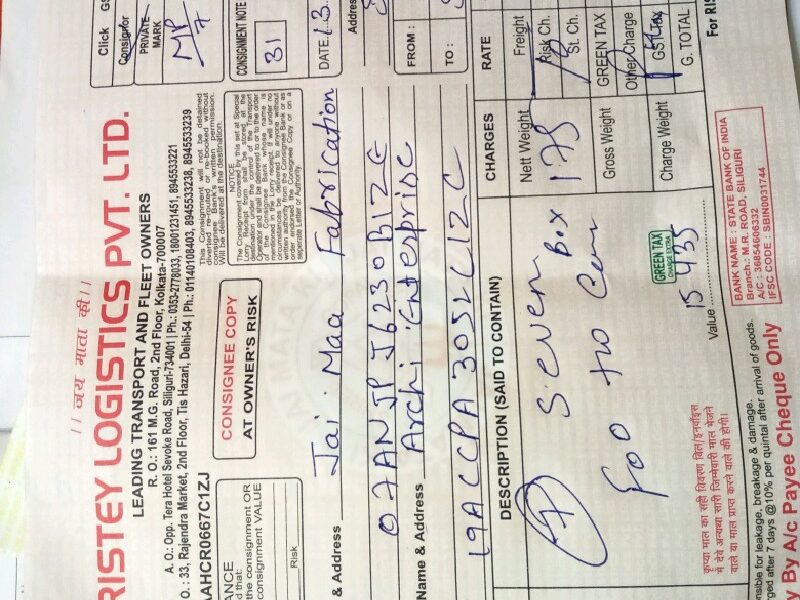 ।। जय माता की ।।
RISTEY LOGISTICS PVT. LTD.
LEADING TRANSPORT AND FLEET OWNERS
R. O.: 161 M.G. Road, 2nd Floor, Kolkata-700007
A. O.: Opp. Tera Hotel Sevoke Road, Siliguri-734001 | Ph.: 0353-2778033, 18001231451, 8945533221
.O.: 33, Rajendra Market, 2nd Floor, Tis Hazari, Delhi-54 | Ph.: 01140108403, 8945533238, 8945533239
AAHCR0667C1ZJ
Click
Consignor
PRIVATE
MARK
MP
7
CONSIGNEE COPY
AT OWNER'S RISK
This Consignment will not be detained
diverted re-routed or re-booked without
Consignee Bank's written permission.
Will be delivered at the destination.
NOTICE
The Consignment covered by this set at Special
Lorry Receipt from shall be stored at the
destination under the control of the Transport
Operator and shall be delivered to or to the order
of the Consignee Bank whose name is
mentioned in the Lorry receipt. If will under no
circumstances be delivered to anyone without
written authority from the Consignee Bank or as
order endorsed the Consignee Copy or on a
seperate Letter or Authority.
CONSIGNMENT NOTE
31
DATE
ANCE
d that:
the consignment OR
consignment VALUE
Risk
& Address
Jai Maa Fabrication
Address
07ANJPJ6230B1ZE
FROM :
Name & Address
Archi Enterprise
TO :
19ACCPA3052C1ZC
DESCRIPTION (SAID TO CONTAIN)
CHARGES
RATE
7
Seven Box
Nett Weight
175
Freight
Risk Ch.
St. Ch.
Gross Weight
GREEN TAX
Other Charge
Charge Weight
GST Tax
G. TOTAL
GREEN TAX
CHARGE EXTRA
Value
15435
कृप्या माल का सही विवरण बिल/इनवॉइस
में देवे अन्यथा सारी जिम्मेवारी माल भेजने
वाले या माल प्राप्त करने वाले की होगी।
BANK NAME : STATE BANK OF INDIA
Branch.: M.R. ROAD, SILIGURI
A/C : 36854606332
IFSC CODE : SBIN0031744
For RIS
sible for leakage, breakage & damage.
ged after 7 days @10% per quintal after arrival of goods.
y By A/c Payee Cheque Only